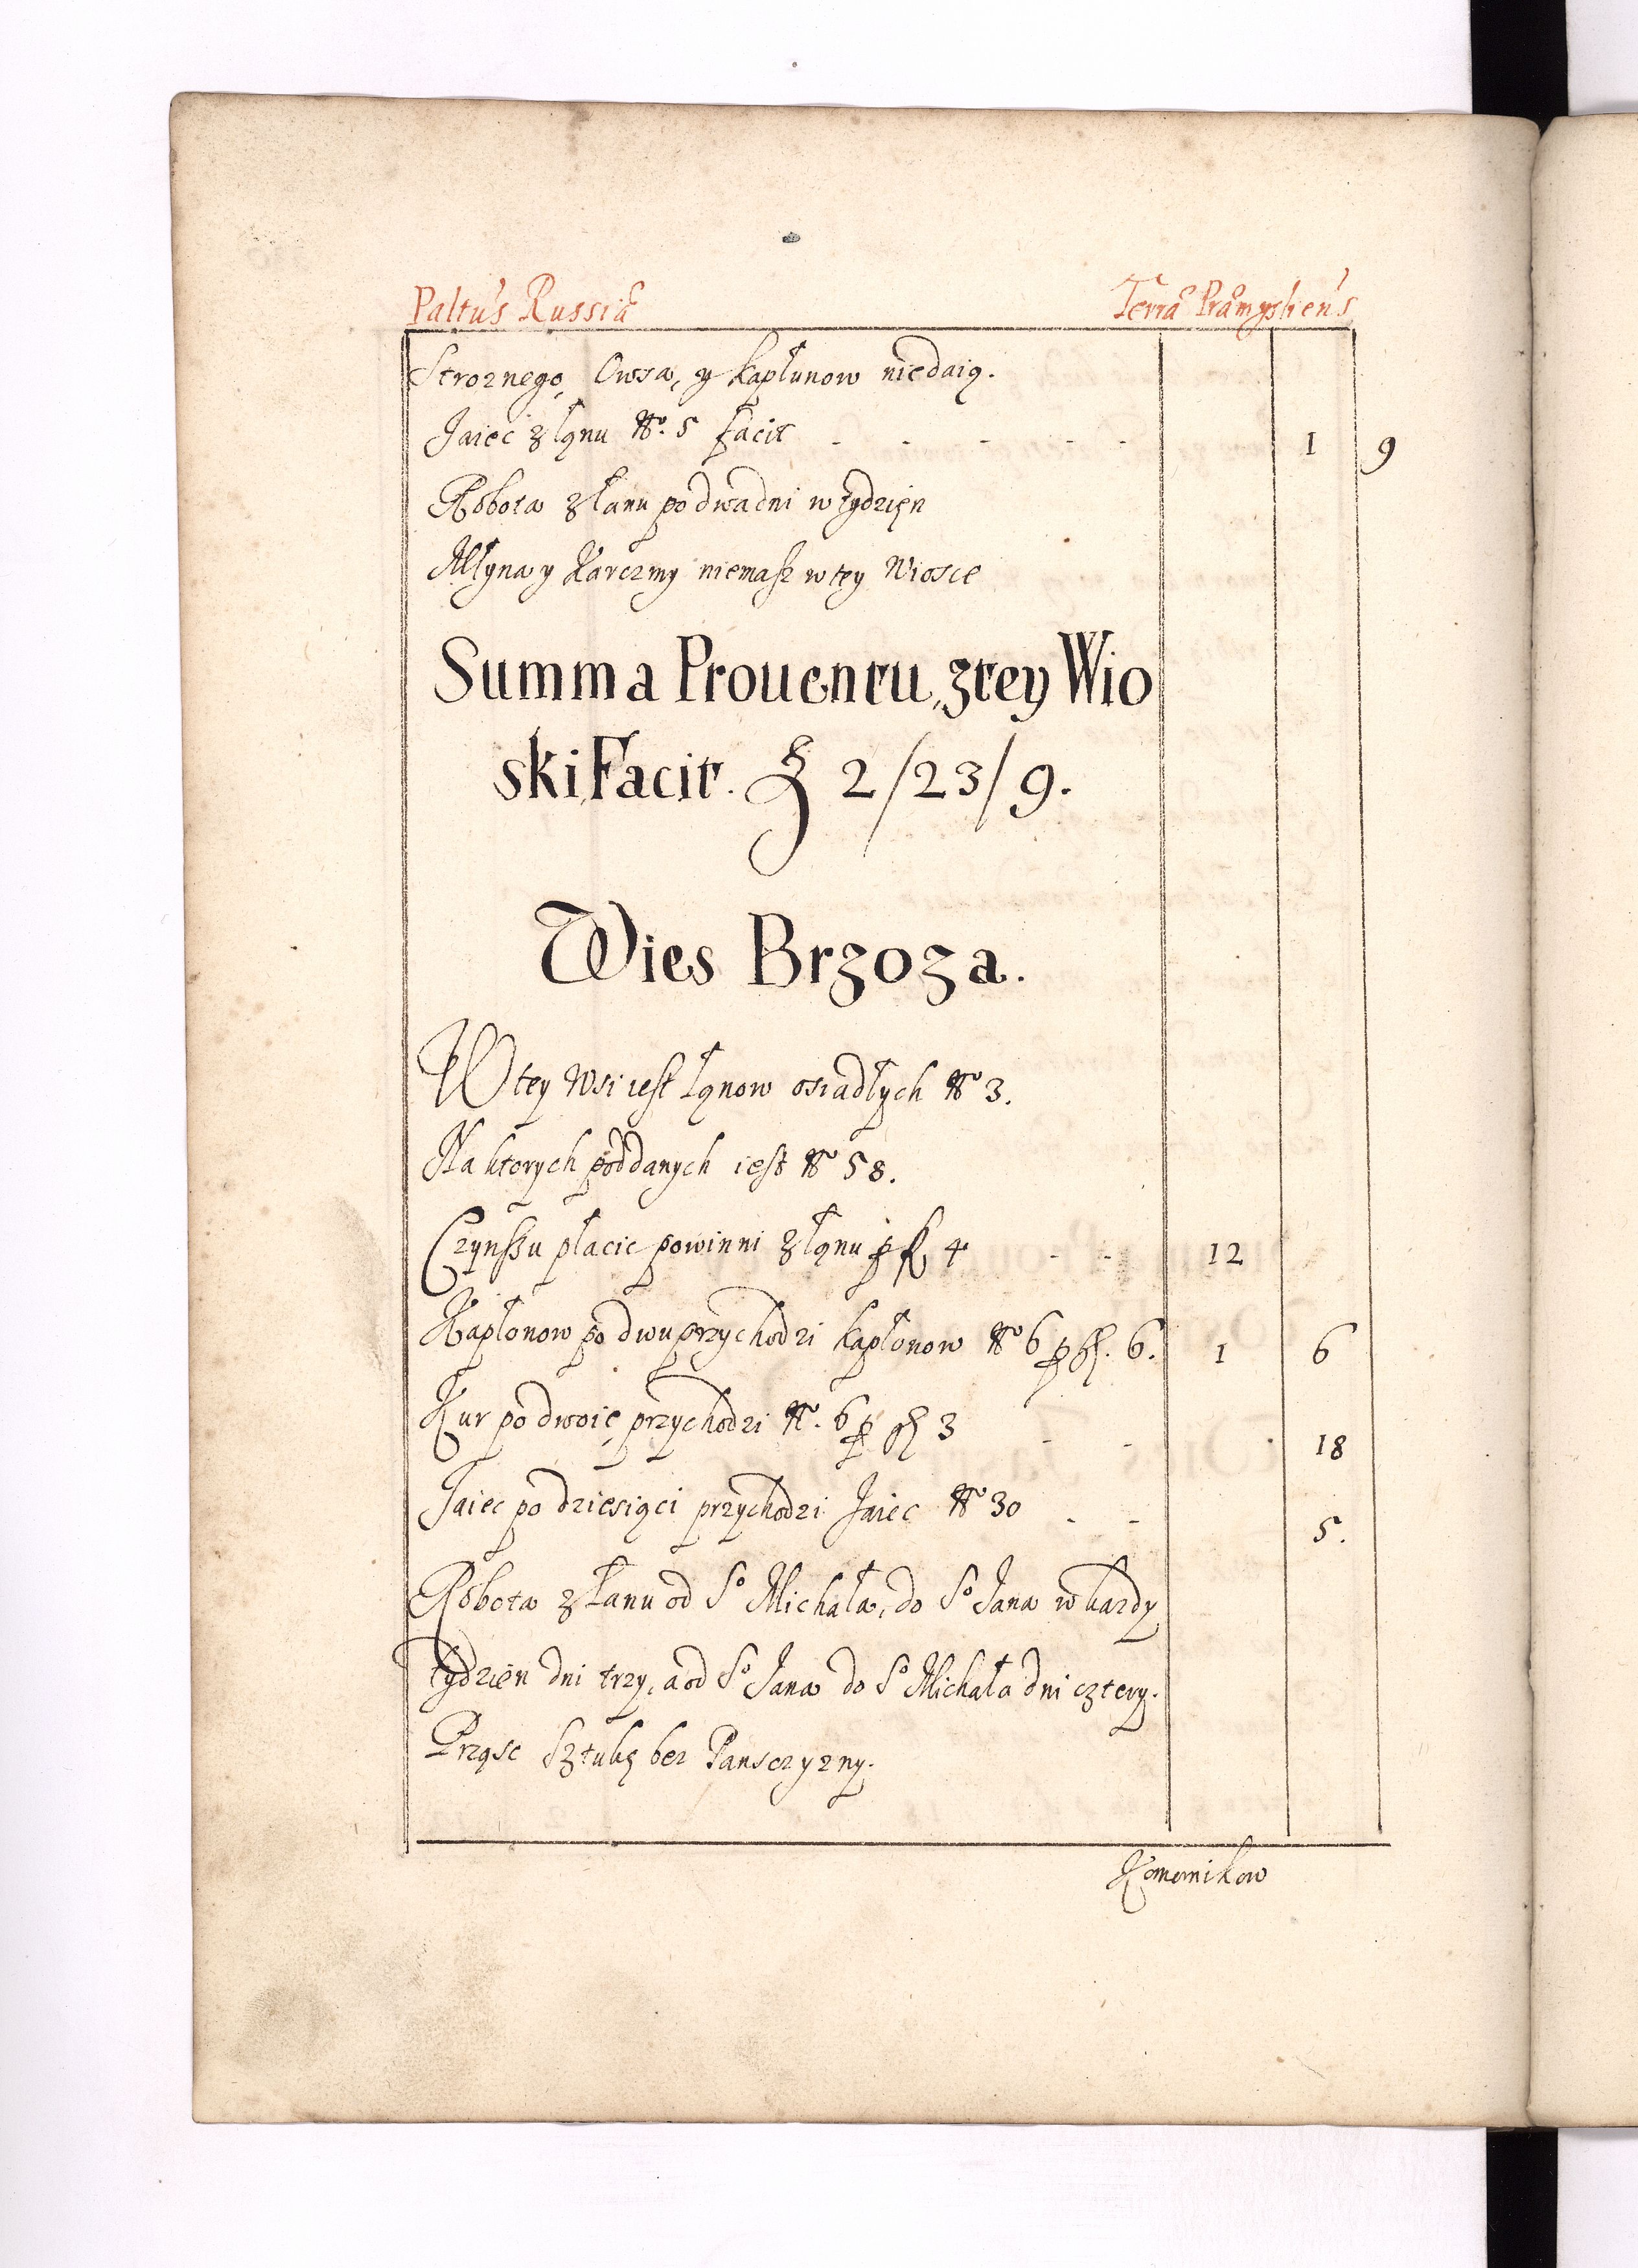 Paltus Russiæ Terræ Præmysliens
Stroznego, Owsa, y kapłunow niedaią.
Jaiec z łąnu No. 5 facit - - - - - 1 9
Robota z łanu po dwa dni w tydzięn
Młyna y Karczmy niemasz w tey Wiosce
Summa Prouentu, z tey Wio
ski, Facit. 2/23/9.
Wies Brzoza.
W tey Wsi iest łąnow osiadłych No 3.
Na ktorych poddanych iest No 58.
Czynszu płacic powinni z łąnu p fl 4 - - 12
Kapłonow po dwu przychodzi kapłonow No 6 p gr. 6. 1 6
Kur po dwoie przychodzi No. 6 p gr 3 - - 18
Jaiec po dziesiąci przychodzi Jaiec No 30 - - 5.
Robota z łanu od So Michała, do So Jana w kazdy
tydzien dni trzy, a od So Jana do So Michała dni cztery.
Prząsc Sztukę bez Panscżyzny.
Komornikow